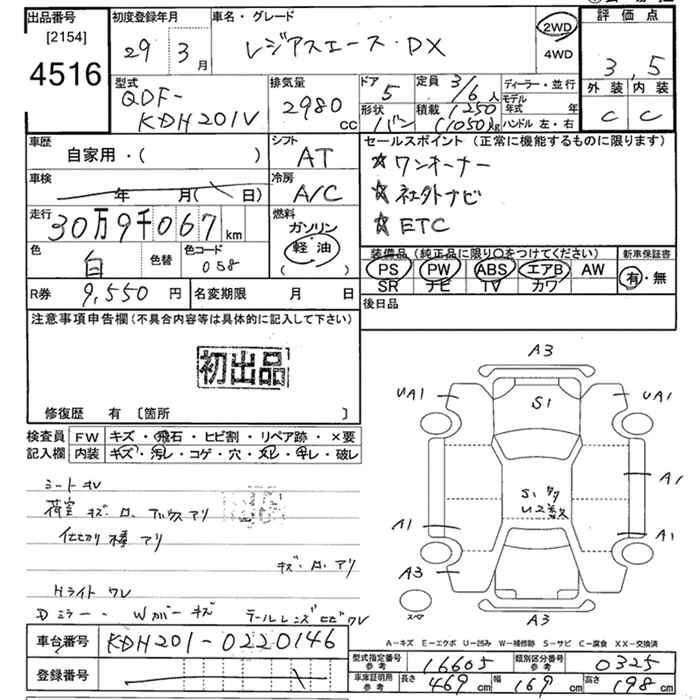 出品番号
[2154]
4516
初度登録年月
29年 3月
車名・グレード
レジアスエース・DX
2WD
4WD
評価点
3.5
外装 内装
C C
型式
QDF-
KDH201V
排気量
2980
CC
ドア
5
定員 3/6人
形状
バン
積載 1250
(1050)kg
ディーラー・並行
モデル
年式 年
ハンドル 左・右
車歴
自家用・( )
シフト
AT
セールスポイント (正常に機能するものに限ります)
☆ワンオーナー
☆社外ナビ
☆ETC
車検
年 月( 日)
冷房
A/C
走行
30万9千067
km
燃料
ガソリン
軽・油
( )
色
白
色替
色コード
058
装備品 (純正品に限り○をつけてください)
PS PW ABS エアB AW
SR ナビ TV カワ
新車保証書
有・無
R券 9,550 円
名変期限 月 日
後日品
注意事項申告欄 (不具合内容等は具体的に記入して下さい)
初出品
修復歴 有 〔箇所 〕
検査員
記入欄
FW キズ・飛石・ヒビ割・リペア跡・×要
内装 キズ・汚レ・コゲ・穴・スレ・キレ・破レ
シートキレ
荷室 キズ・ロ・アリ
キズ・ロ・アリ
Hライト ワレ
Dミラー Wカバーキズ テールレンズヒビワレ
A3
UA1 UA1
S1
A1
S1 多
U2多数
A1 A1
A3
スペ
A3
A-キズ E-エクボ U-凹み W-補修跡 S-サビ C-腐食 XX-交換済
車台番号 KDH201-0220146
登録番号
型式指定番号
参考
16605
類別区分番号
参考
0325
車庫証明用
参考
長さ 469 cm 幅 169 cm 高さ 198 cm